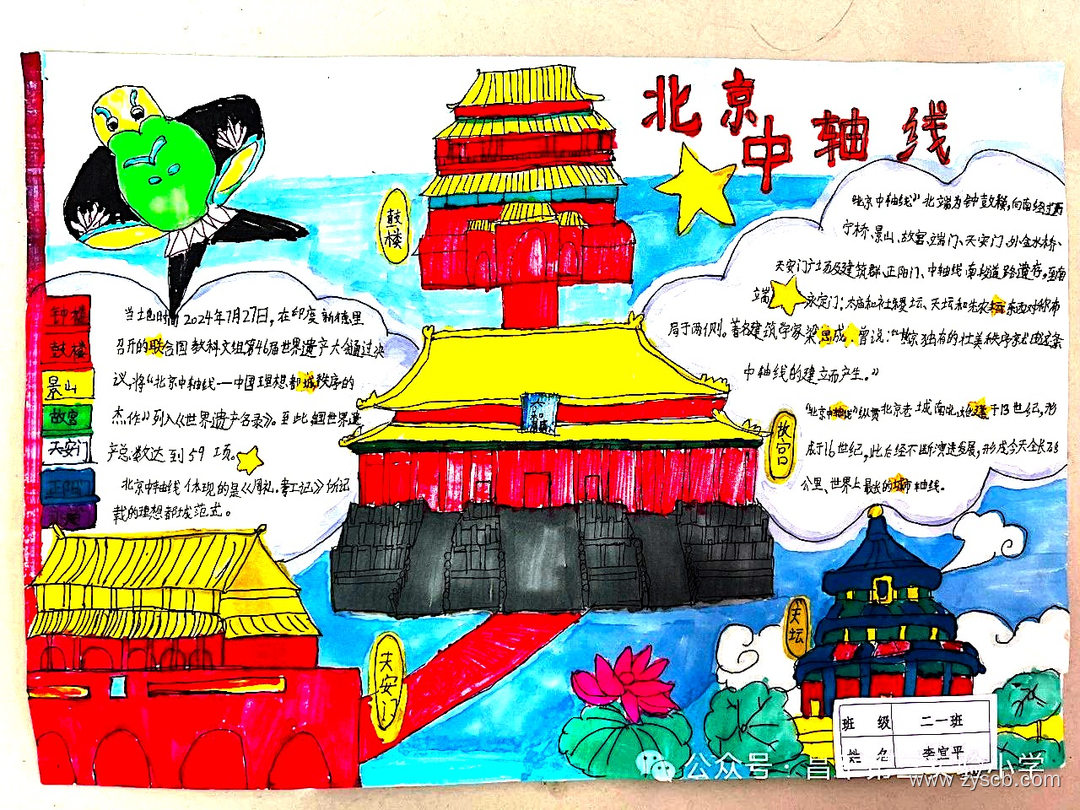 北京中轴线
鼓楼
故宫
天安门
天坛
钟楼
鼓楼
景山
故宫
天安门
正阳
当地时间2024年7月27日,在印度新德里
召开的联合国教科文组第46届世界遗产大会通过决
议,将“北京中轴线—中国理想都城秩序的
杰作”列入《世界遗产名录》。至此,世界遗
产总数达到59项。
北京中轴线体现的是《周礼·考工记》所记
载的理想都城范式。
北京中轴线”北端为钟鼓楼,向南经过万
宁桥、景山、故宫、端门、天安门、外金水桥、
天安门广场及建筑群、正阳门、中轴线南段道路遗存,至南
端永定门;太庙和社稷坛、天坛和先农坛东西对称布
局于两侧。著名建筑学家梁思成曾说:“北京独有的壮美秩序就由这条
中轴线的建立而产生。”
“北京中轴线”纵贯北京老城南北,始建于13世纪,形
成于16世纪,此后经不断演进发展,形成今天全长7.8
公里、世界上最长的城市轴线。
班 级 二一班
姓 名 李宣平
公众号·昌 第 小学
www.zyscb.com